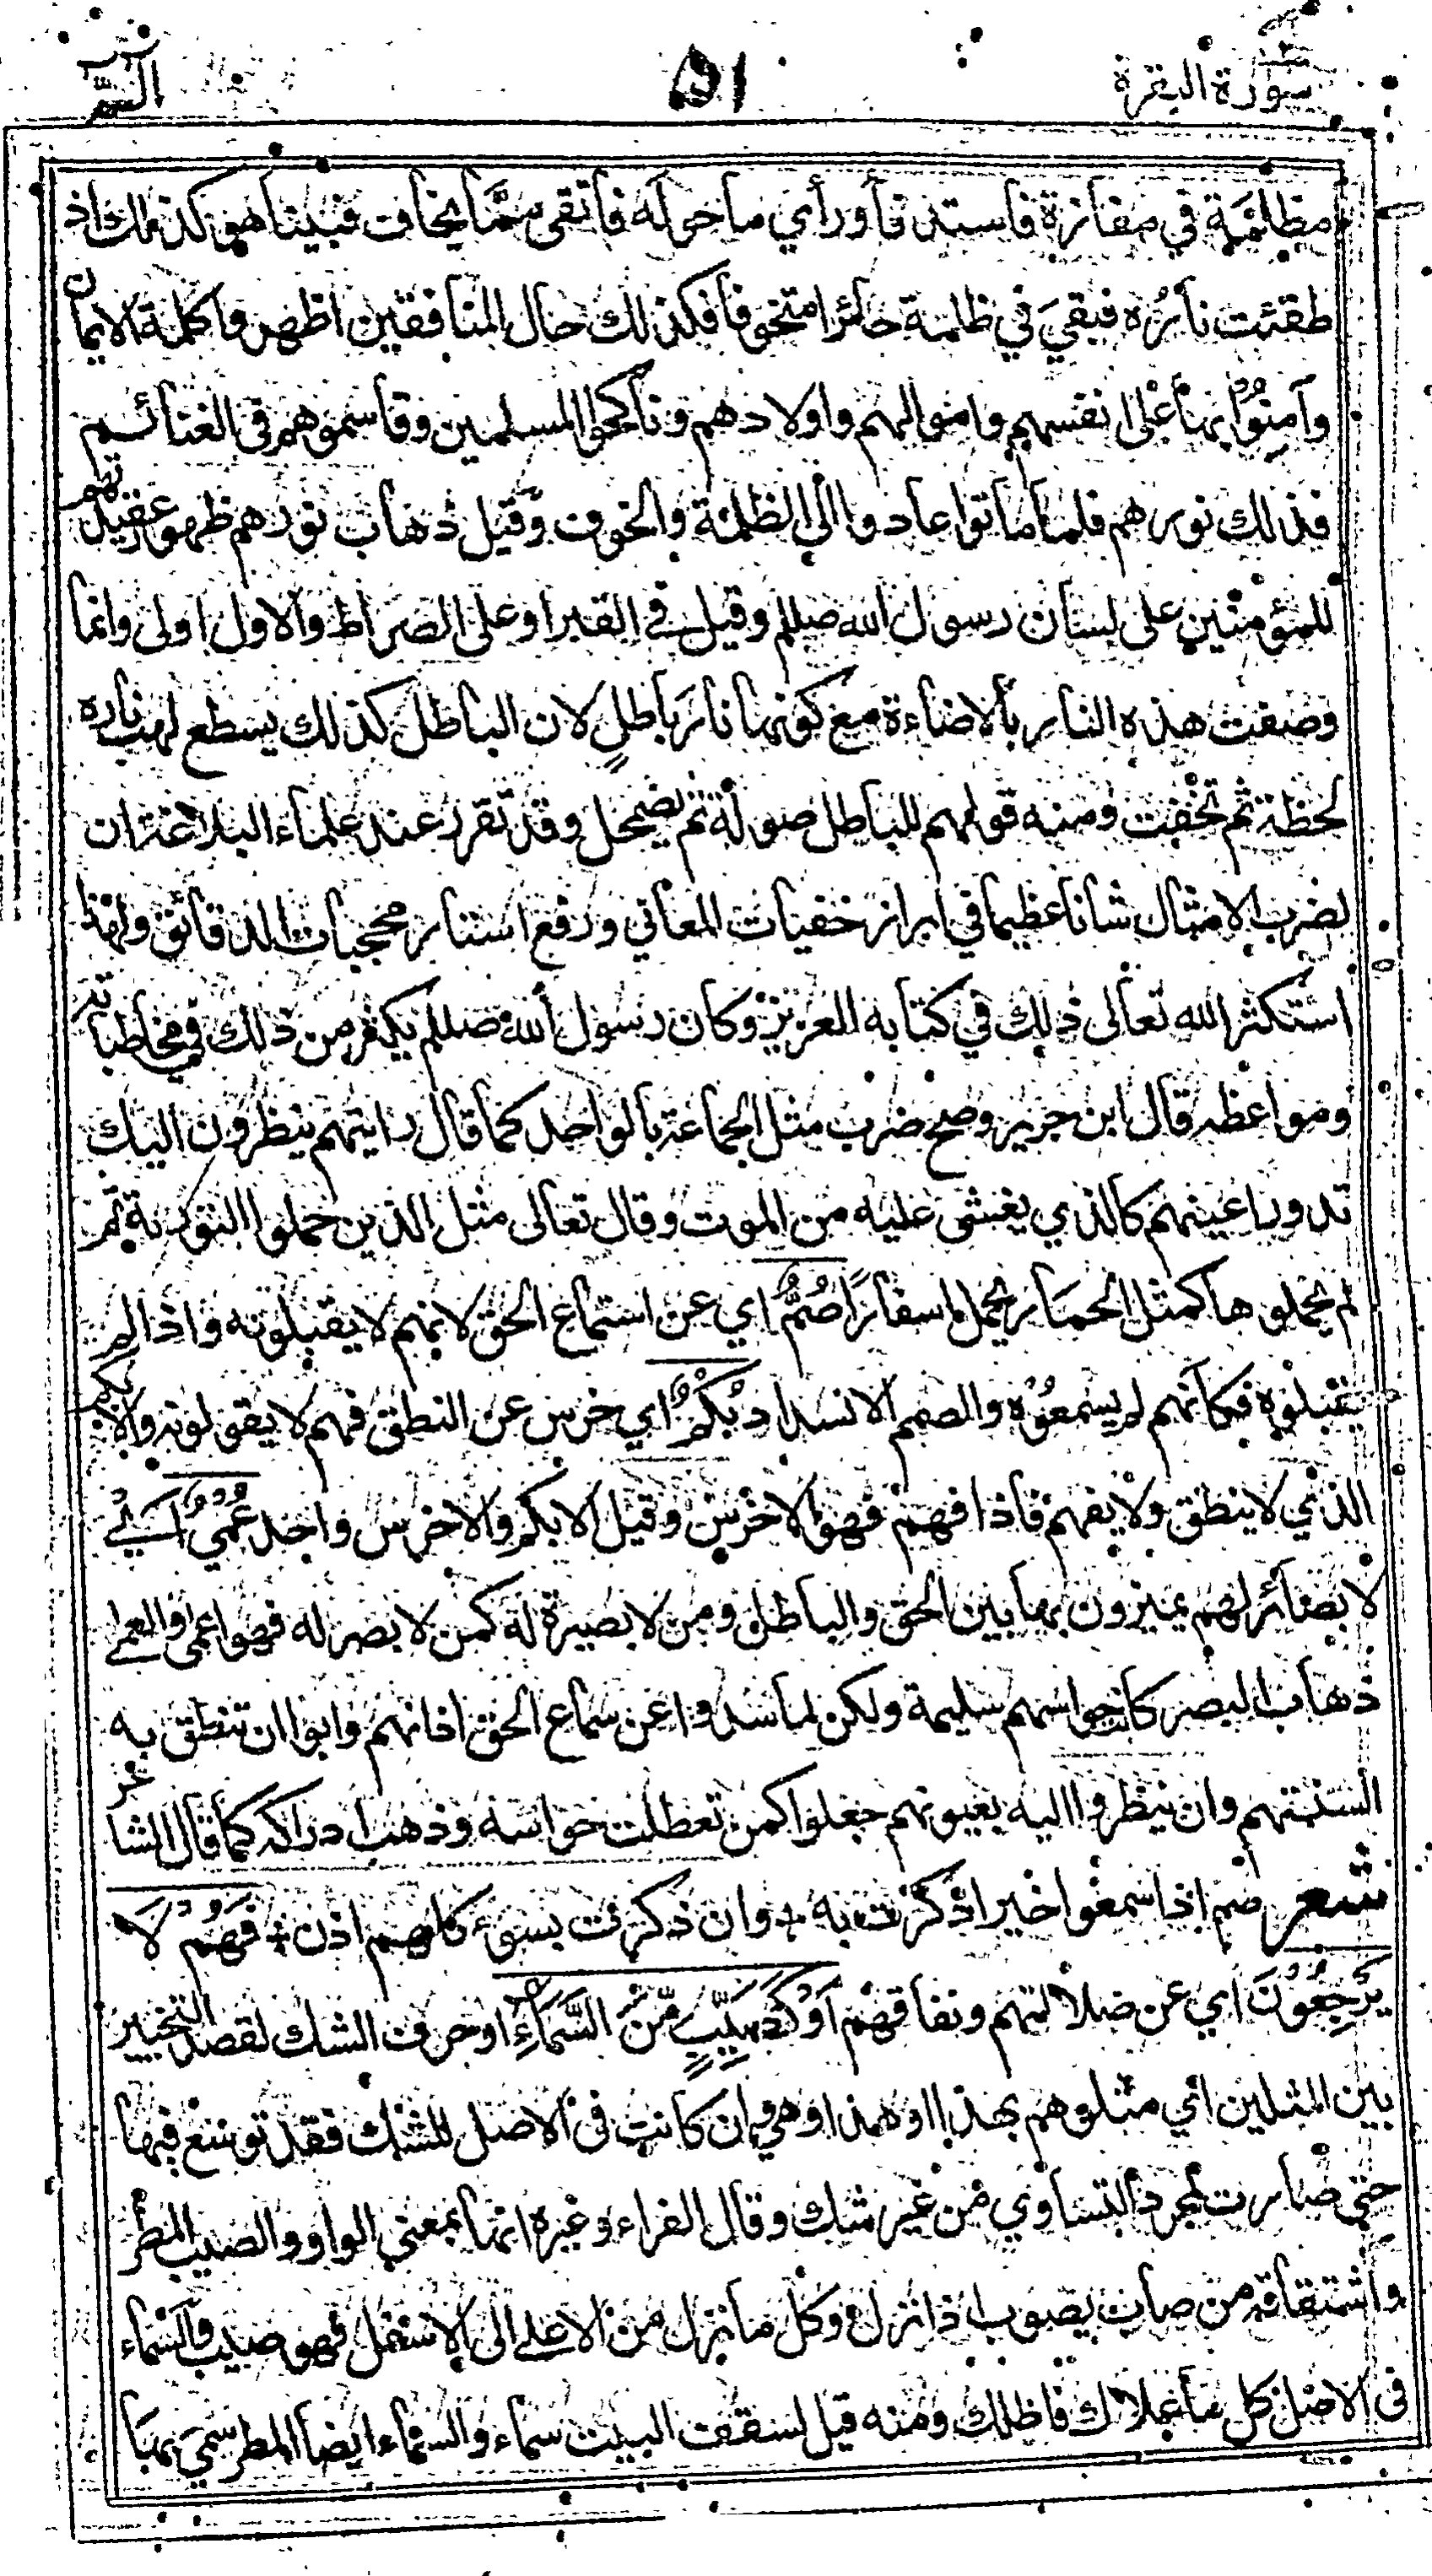 سورة البقرة ٥١ الٓمّٓ
مظلمة في مفازة فاستدفأ ورأى ما حوله فاتقى مما يخاف فبينا هو كذلك اذ
طفئت ناره فبقي في ظلمة حائرا متخوفا فكذلك حال المنافقين اظهروا كلمة الايمان
وآمنوا بها على انفسهم واموالهم واولادهم وناكحوا المسلمين وقاسموهم في الغنائم
فذلك نورهم فلما ماتوا عادوا الى الظلمة والخوف وقيل ذهاب نورهم ظهور عقيدتهم
للمؤمنين على لسان رسول الله صللم وقيل في القبر او على الصراط والاول اولى وانما
وصفت هذه النار بالاضاءة مع كونها نار باطل لان الباطل كذلك يسطع لهب ناره
لحظة ثم تخفت ومنه قولهم للباطل صولة ثم يضمحل وقد تقرر عند علماء البلاغة ان
لضرب الامثال شانا عظيما في ابراز خفيات المعاني ورفع استار محجبات الدقائق ولهذا
استكثر الله تعالى ذلك في كتابه العزيز وكان رسول الله صللم يكثر من ذلك في مخاطباته
ومواعظه قال ابن جرير وصح ضرب مثل الجماعة بالواحد كما قال رايتهم ينظرون اليك
تدور اعينهم كالذي يغشى عليه من الموت وقال تعالى مثل الذين حملوا التورىة ثم
لم يحملوها كمثل الحمار يحمل اسفارًا صُمٌّ اي عن استماع الحق لانهم لا يقبلونه واذا لم
يقبلوه فكانهم لم يسمعوه والصمم الانسداد بُكْمٌ اي خرس عن النطق فهم لا يقولونه والابكم
الذي لا ينطق ولا يفهم فاذا فهم فهو الاخرس وقيل الابكم والاخرس واحد عُمْيٌ اي
لا بصائر لهم يميزون بها بين الحق والباطل ومن لا بصيرة له كمن لا بصر له فهو اعمى والعمى
ذهاب البصر كانت حواسهم سليمة ولكن لما سدوا عن سماع الحق اذانهم وابوا ان تنطق به
السنتهم وان ينظروا اليه بعيونهم جعلوا كمن تعطلت حواسه وذهب ادراكه كما قال الشاعر
شعر صم اذا سمعوا خيرا ذكرت به ÷ وان ذكرت بسوء كلهم اذن ÷ فَهُمْ لَا
يَرْجِعُوْنَ اي عن ضلالتهم ونفاقهم اَوْ كَصَيِّبٍ مِّنَ السَّمَآءِ او حرف الشك لقصد التخيير
بين المثلين اي مثلوهم بهذا او هذا او هي وان كانت في الاصل للشك فقد توسع فيها
حتى صارت لمجرد التساوي من غير شك وقال الفراء وغيره انها بمعنى الواو والصيب المطر
واشتقاقه من صاب يصوب اذا نزل وكل ما نزل من الاعلى الى الاسفل فهو صيب والسماء
في الاصل كل ما علاك فاظلك ومنه قيل لسقف البيت سماء والسماء ايضا المطر سمي بها